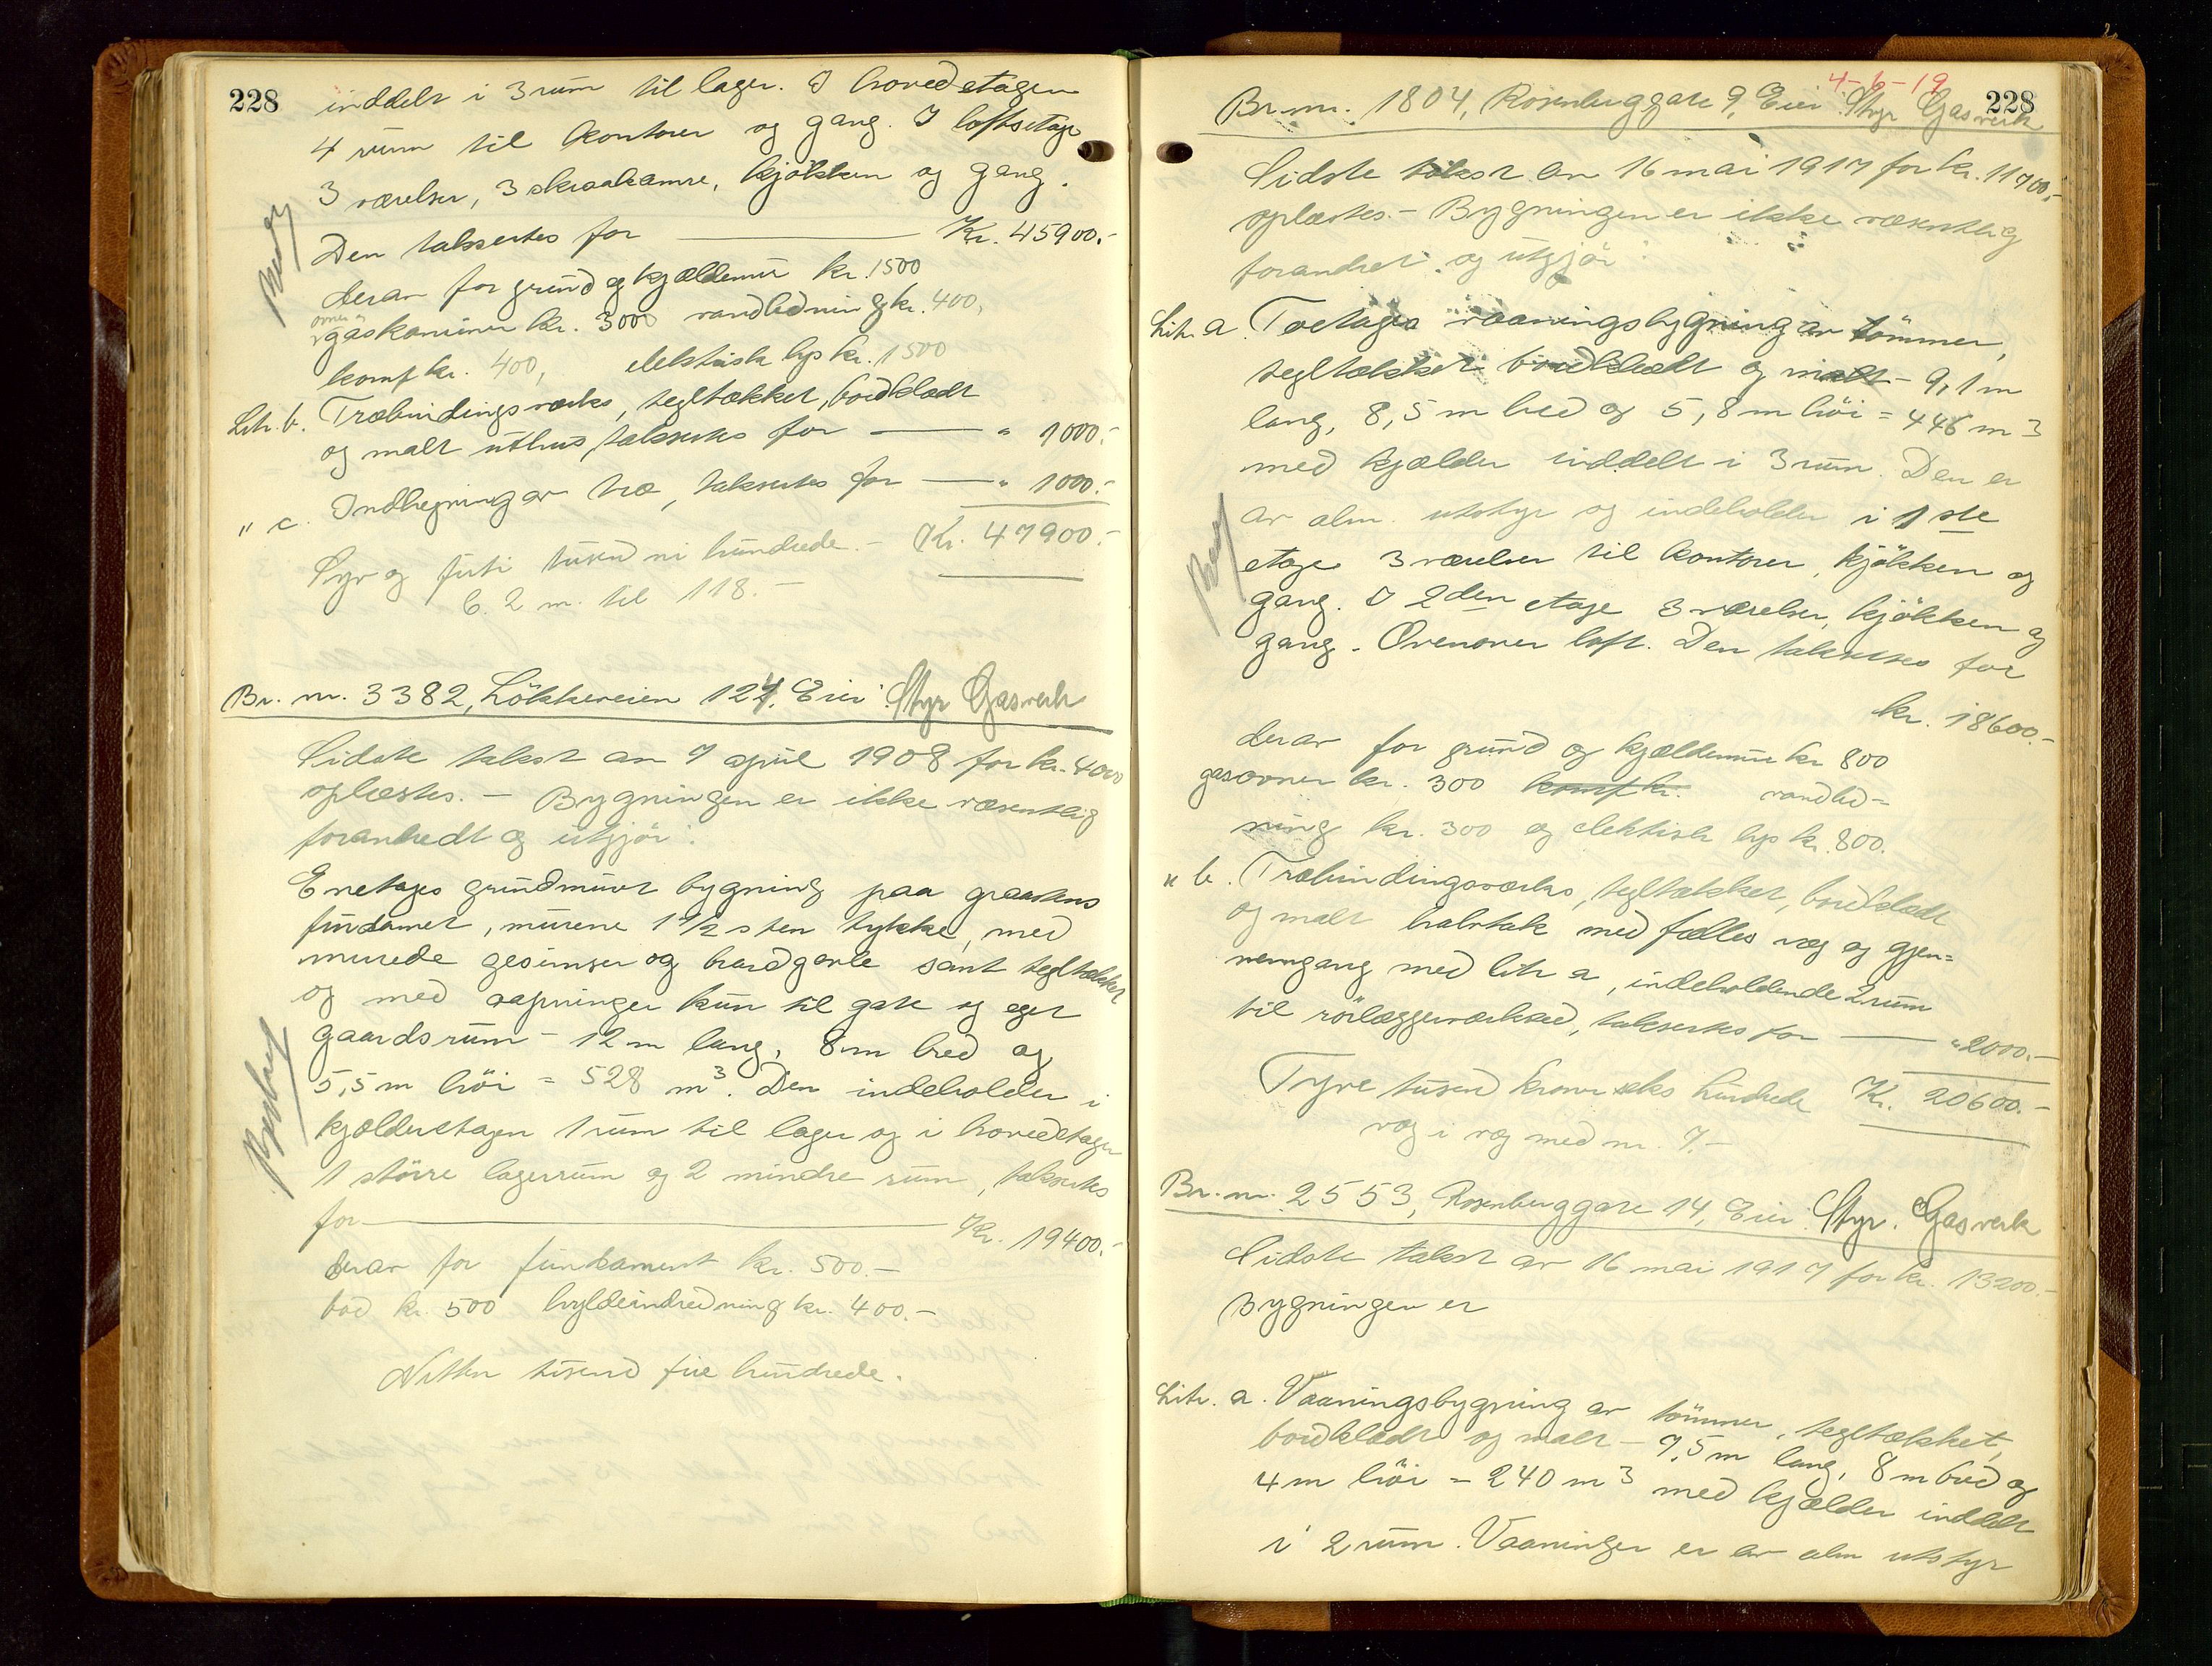 228
inddelt i 3 rum til lager. I hovedetagen
4 rum til kontorer og gang. I loftsetage
3 værelser, 3 skraakamre, kjøkken og gang.
Den takseres for Kr. 45900.-
derav for grund og kjældermur kr. 1500
ovner og
gaskaminer kr. 3000 vandledning kr. 400,
komf kr. 400, elektrisk lys kr. 1500
Litr. b. Træbindingsværks, tegltækket, bordklædt
og malt uthus, takseres for " 1000.-
" c. Indhegning av træ, takseres for " 1000.-
Syv og firti tusend ni hundrede. - Kr. 47900.-
6.2 m. til 118.-
Br. nr. 3382, Løkkeveien 124, Eier: Styr Gasverk
Sidste takst av 7 april 1908 for kr. 4000
oplæstes. - Bygningen er ikke væsentlig
forandredt og utgjør:
Enetages grundmurt bygning paa graastens
fundament, murene 1 1/2 sten tykke, med
murede gesimser og brandgavle samt tegltækket
og med aapninger kun til gate og eget
gaardsrum - 12 m lang, 8 m bred og
5,5 m høi = 528 m3. Den indeholder i
kjælderetagen 1 rum til lager og i hovedetagen
1 større lagerrum og 2 mindre rum, takseres
for Kr. 19400.-
derav for fundament kr. 500.-
bod kr. 500 hyldeindredning kr. 400.-
Nitten tusend fire hundrede.
4-6-19
228
Br. nr. 1804, Rosenberggate 9, Eier: Styr Gasverk
Sidste takst av 16 mai 1917 for kr. 11700.-
oplæstes. - Bygningen er ikke væsentlig
forandret og utgjør:
Litr. a. Toetages vaaningsbygning av tømmer,
tegltækket bordklædt og malt - 9,1 m
lang, 8,5 m bred og 5,8 m høi = 446 m3
med kjælder inddelt i 3 rum. Den er
av alm. utstyr og indeholder i 1ste
etage 3 værelser til kontorer, kjøkken og
gang. I 2den etage 3 værelser, kjøkken og
gang. Ovenover loft. Den takseres for
kr. 18600.-
derav for grund og kjældermur kr 800
gasovner kr. 300 komf kr. vandled=
ning kr. 300 og elektrisk lys kr. 800.
" b. Træbindingsværks, tegltækket, bordklædt
og malt halvtak med fælles væg og gjen=
nemgang med litr a, indeholdende 2 rum
til rørlæggerverksted, takseres for " 2000.-
Tyve tusend kroner seks hundrede Kr. 20600.-
væg i væg med nr. 7.-
Br. nr. 2553, Rosenberggate 14, Eier: Styr. Gasverk
Sidste takst av 16 mai 1917 for kr. 13200.-
Bygningen er
Litr. a. Vaaningsbygning av tømmer, tegltækket,
bordklædt og malt - 7,5 m lang, 8 m bred og
4 m høi = 240 m3 med kjælder inddelt
i 2 rum. Vaaningen er av alm utstyr